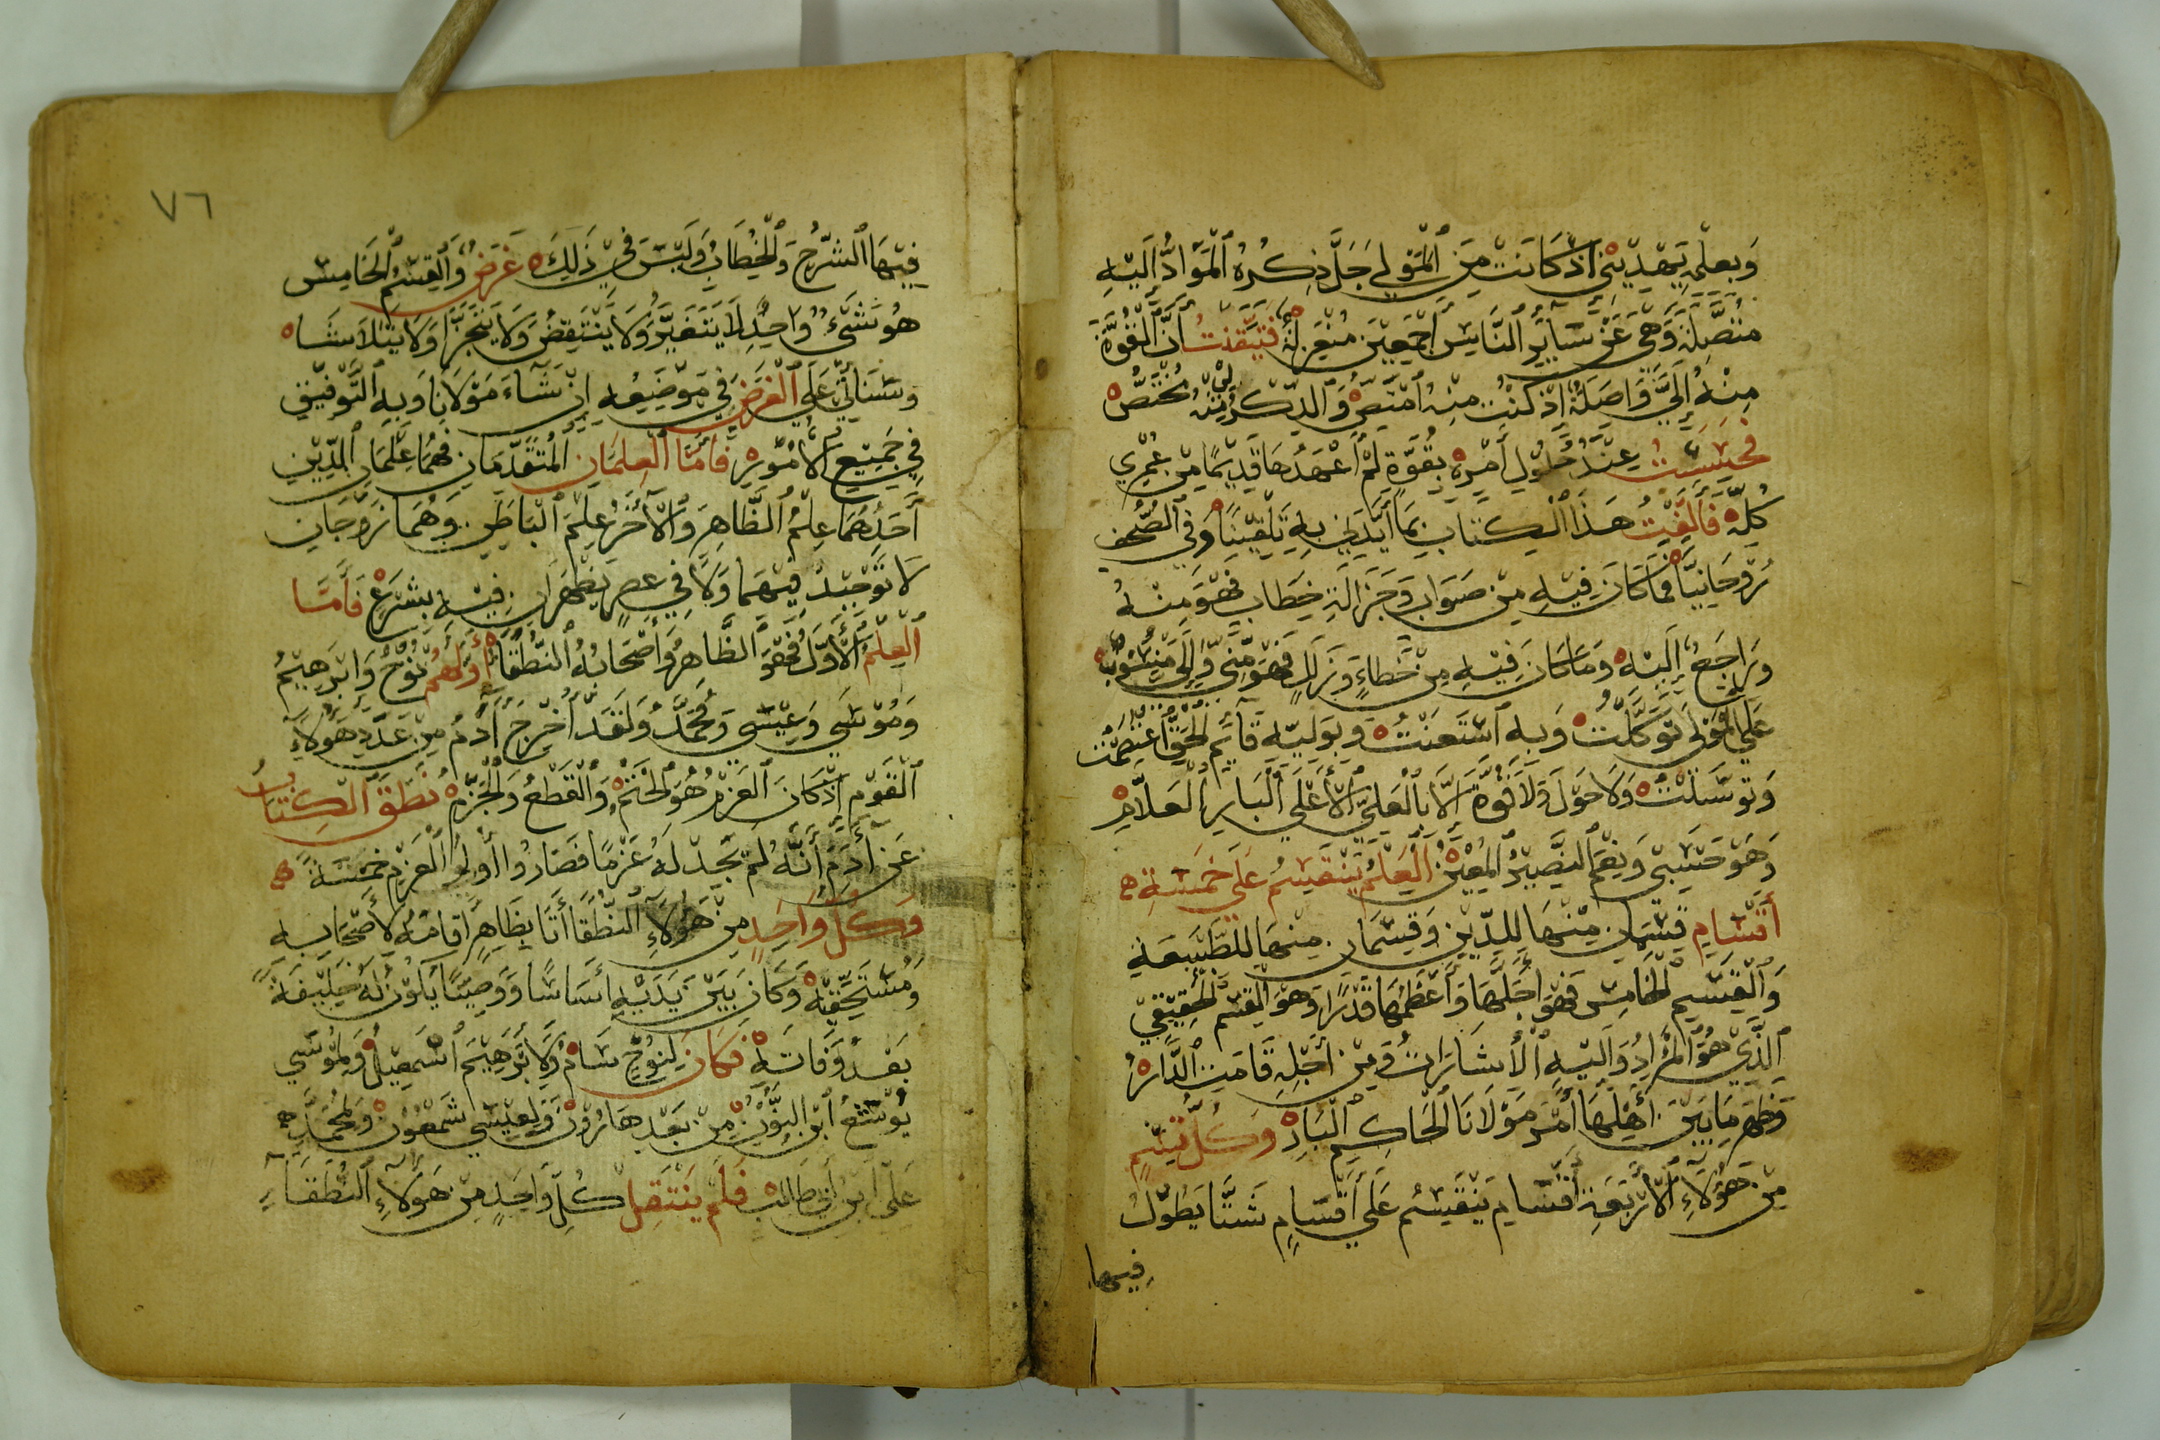 وَبِعِلْمِهِ يَهْدِيْنِي اذْ كَانَتْ مِنَ ٱلْمَوْلَى جَلَّ ذِكْرُهُ ٱلْمَوَادُّ الَيْهِ
مُتَّصِلَةً وَهِيَ عَنْ سَآيِرِ النَّاسِ أَجْمَعِيْنَ مُنْعَزِلَةً فَتَيَقَّنْتُ أَنَّ ٱلْقُوَّةَ
مِنْهُ إِلَيَّ وَاصِلَةً اِذْ كُنْتُ مِنْهُ أَمْتَصُّ وَٱلذِّكْرُ مِنْهُ لِيْ مُخْتَصُّ
فَحَبَسْتُ عِنْدَ حُلُولِ أَمْرِهِ بِقُوَّةٍ لَمْ أَعْهَدُهَا قَدِيْمًا مِنْ عُمْرِي
كُلِّهِ فَأَلَّفْتُ هَذَا ٱلْكِتَابَ بِمَا أَيَّدَنِي بِهِ تَلْقِيْنًا وَفِي ٱلصُّحُفِ
رُوْحَانِيًّا فَمَا كَانَ فِيْهِ مِنْ صَوَابٍ وَجَزَالَةِ خِطَابٍ فَهُوَ مِنْهُ
وَرَاجِعٌ الَيْهِ وَمَا كَانَ فِيْهِ مِنْ خَطَاءٍ وَزَلَلٍ فَهُوَ مِنِّي وَإِلَيَّ مَنْسُوْبٌ
عَلَى ٱلْمَوْلَى تَوَكَّلْتُ وَبِهِ ٱسْتَعَنْتُ وَبِوَلِيِّهِ قَآئِمِ ٱلْحَقِّ ٱعْتَصَمْتُ
وَتَوَسَّلْتُ وَلَا حَوْلَ وَلَا قُوَّةَ إلَّا بِٱلْعَلِيِّ ٱلْأَعْلَى ٱلْبَارِ ٱلْعَلَّامِ
وَهُوَ حَسْبِي وَنِعْمَ ٱلنَّصِيْرُ ٱلْمُعِيْنُ ٱلْعِلْمُ يَنْقَسِمُ عَلَى خَمْسَةِ
أَقْسَامٍ قِسْمَانِ مِنْهَا لِلدِّيْنِ وَقِسْمَانِ مِنْهَا لِلطَّبِيْعَةِ
وَٱلْقِسْمِ ٱلْخَامِسِ فَهُوَ أَجَلُّهَا وَأَعْظَمُهَا قَدْرًا وَهُوَ ٱلْقِسْمُ ٱلْحَقِيْقِيُّ
ٱلَّذِيْ هُوَ ٱلْمُرَادُ وَإِلَيْهِ ٱلْأَشَارَاتُ وَمِنْ أَجْلِهِ قَامَتِ ٱلدَّارُ
وَظَهَرَ مَا بَيْنَ أَهْلِهَا أَمْرُ مَوْلَانَا ٱلْحَاكِمِ ٱلْبَارِ وَكُلُّ قِسْمٍ
مِنْ هَؤُلَآءِ ٱلْأَرْبَعَةِ أَقْسَامٍ يَنْقَسِمُ عَلَى أَقْسَامٍ شَتَّا يَطُوْلُ
فيها
٧٦
فِيْهَا ٱلشَّرْحُ وَٱلْخِطَابُ وَلَيْسَ فِيْ ذَلِكَ غَرَضٌ وَٱلْقِسْمُ ٱلْخَامِسُ
هُوَ شَيْءٌ وَاحِدٌ لَا يَتَغَيَّرُ وَلَا يَنْتَقِضُ وَلَا يَتَجَزَّا وَلَا يَتَلَاشَا
وَسَنَأْتِيْ عَلَى ٱلْغَرَضِ فِي مَوْضِعِهِ إِنْ شَآءَ مَوْلَانَا وَبِهِ ٱلتَّوْفِيْقِ
فِي جَمِيْعِ ٱلْأُمُوْرِ فَأَمَّا ٱلْعِلْمَانِ ٱلْمُتَقَدِّمَانِ فَهُمَا عِلْمَانِ ٱلدِّيْنِ
أَحَدُهُمَا عِلْمُ ٱلظَّاهِرِ وَٱلْأَخَرُ عِلْمَ ٱلْبَاطِنِ وَهُمَا زَوْجَانِ
لَا تَوْحِيْدَ فِيْهِمَا وَلَا فِي عَصْرٍ يَظْهَرَانِ فِيْهِ بِشَرْعٍ فَأَمَّا
ٱلْعِلْمُ ٱلْأَوَّلُ فَهُوَ ٱلظَّاهِرُ وَأَصْحَابُهُ ٱلنُّطَقَا أَوَّلُهُمْ نُوْحٌ وَابْرَهِيْمُ
وَمُوْسَى وَعِيْسَى وَمُحَمَّدٌ وَلَقَدْ أُخْرِجَ أَدَمُ مِنْ عَدَدِ هَؤُلَآءِ
ٱلْقَوْمِ إِذْ كَانَ ٱلْعَزْمُ هُوَ ٱلْحَتْمُ وَٱلْقَطْعُ وَٱلْجَزْمُ نَطَقَ ٱلْكِتَابُ
عَنْ أَدَمَ أَنَّهُ لَمْ يَجِدْ لَهُ عَزْمًا فَصَارُوا أُولُوا ٱلْعَزْمِ خَمْسَةً
وَكُلُّ وَاحِدٍ مِنْ هَؤُلَآءِ ٱلنُّطَقَا أَتَا بِظَاهِرٍ أَقَامَهُ لِأَصْحَابِهِ
وَمُسْتَحِقِّهِ وَكَانَ بَيْنَ يَدَيْهِ أَسَاسًا وَوَصِيًّا يَكُوْنُ لَهُ خَلِيْفَةً
بَعْدَ وَفَاتِهِ فَكَانَ لِنُوْحٍ سَامٌ وَلِأَبْرَهِيْمَ ٱسْمَعِيْلُ وَلِمُوْسَى
يُوْشَعُ ٱبْنُ ٱلنُّوْنْ مِنْ بَعْدِ هَارُوْنَ وَلِعِيْسَى شَمْعُوْنُ وَلِمُحَمَّدٍ
عَلِيُّ ٱبْنُ أَبِي طَالِبْ فَلَمْ يَنْتَقِلْ كُلُّ وَاحِدٍ مِنْ هَؤُلَآءِ ٱلنُّطَقَآءِ